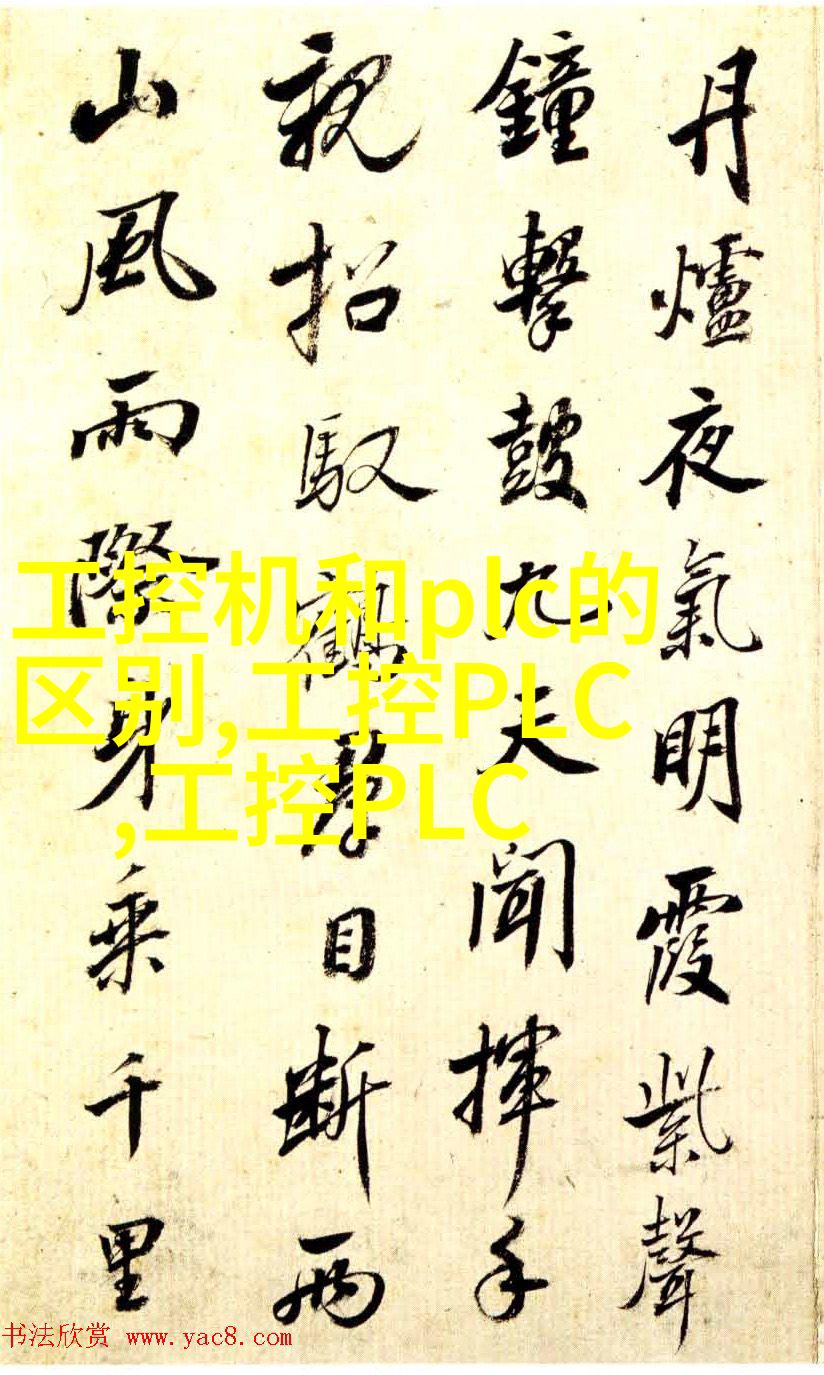 丹爐夜氣明霞紫聲
鐘擊鼓九天聞揮手
親招馭鶴羣目斷兩
山風雨際身乘千里
工控机和plc的
区别,工控PLC
,工控PLC
书法欣赏 www.yac8.com